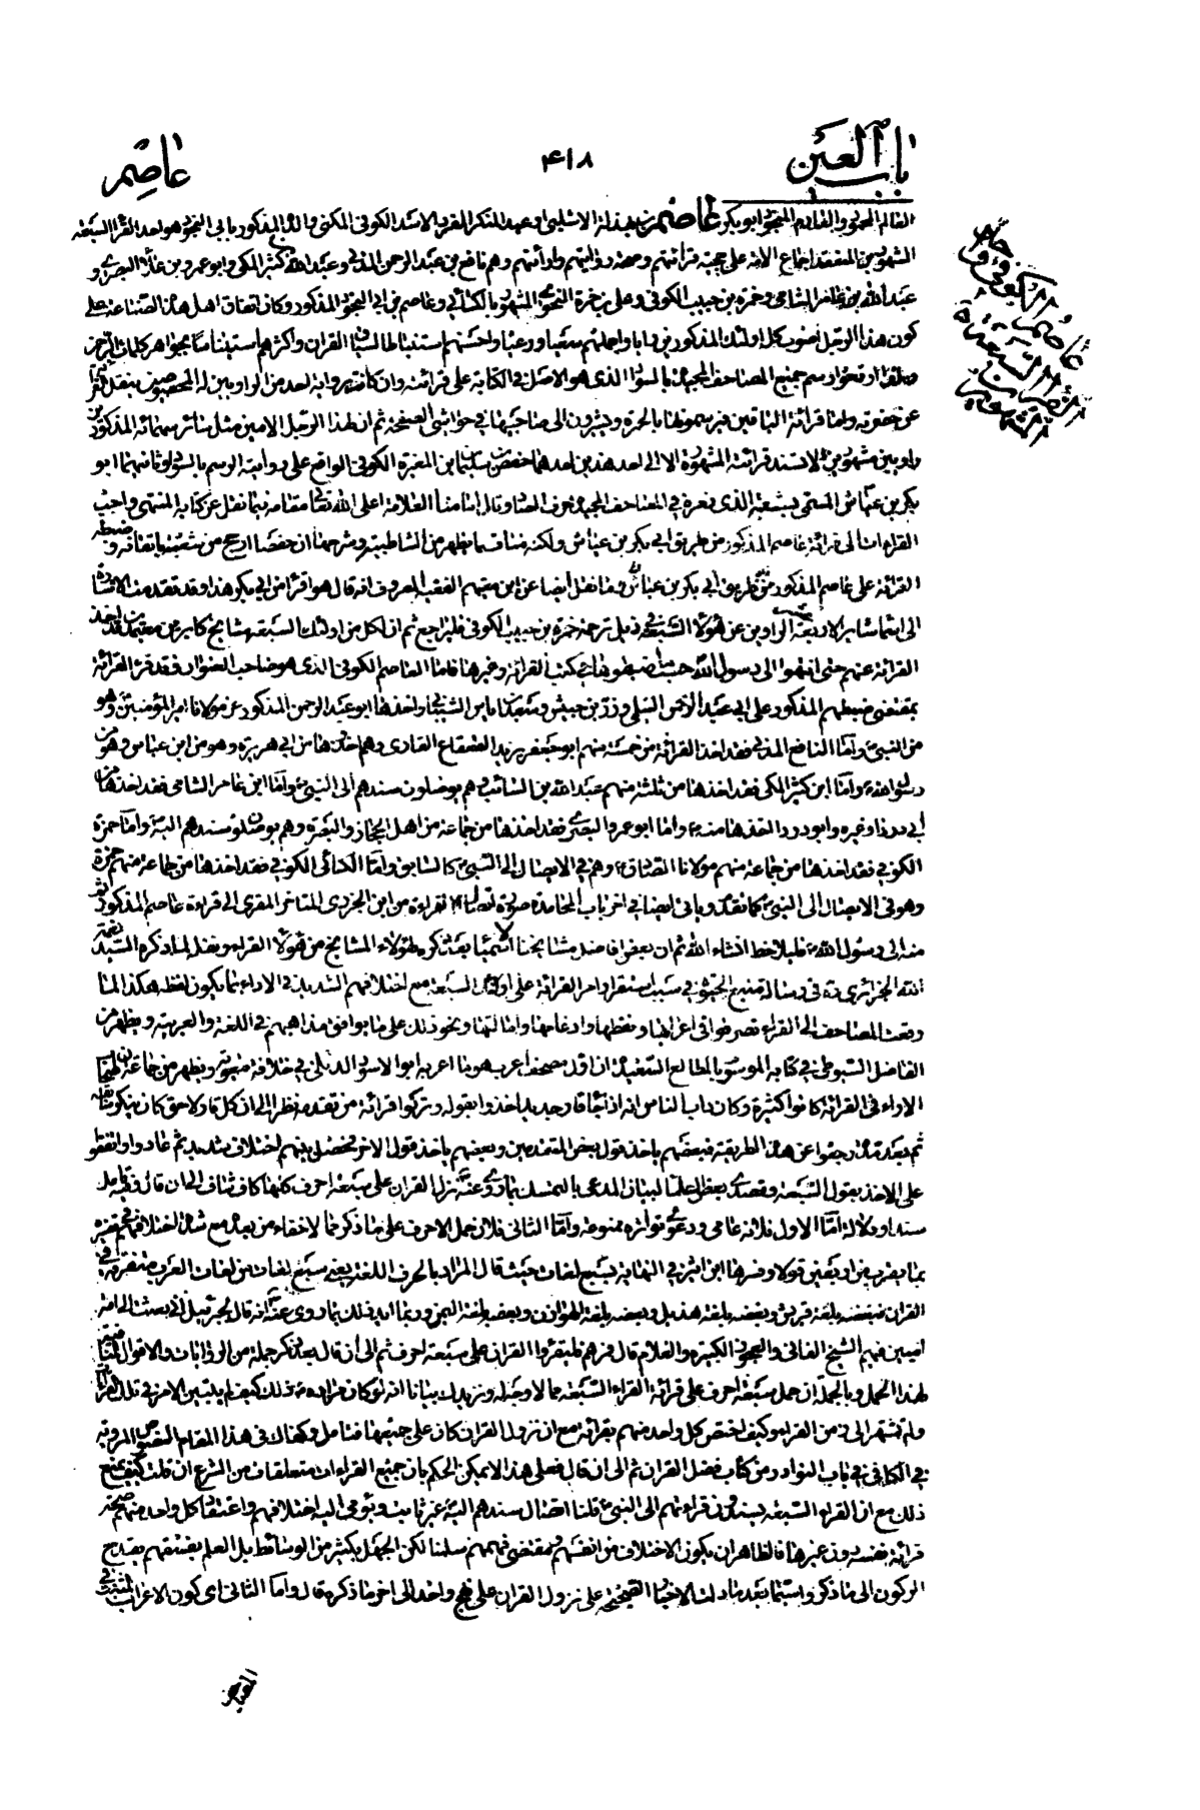 باب العين
٤١٨
عاصم
حال عاصم الكوفي وقراء
القراء السبعة
المشهورين
العالم المحمود والفاهم المجود ابو بكر عاصم بن بهدلة الاسدي الكوفي المكنى والده المذكور بابي النجود هو احد القراء السبعة
المشهورين المنعقد اجماع الامة على حجية قرائتهم وهم نافع بن عبد الرحمن المدني وعبد الله بن كثير المكي وابو عمرو بن علاء البصري و
عبد الله بن عامر الشامي وحمزة بن حبيب الكوفي وعلي بن حمزة النحوي المشهور بالكسائي وعاصم بن ابي النجود المذكور وكان اتفاق اهل هذه الصناعة على
كون هذا الرجل اصوب كل اولئك المذكورين رايا واجملهم سعيا ورعيا واحسنهم استنباطا لسياق القران واكثرهم استيناسا بجواهر كلمات الرحمن
جميع المصاحف المجيدة بالسواد الذي هو الاصل في الكتابة على قرائته وان كانت برواية احد من الراوبين له المخصوصين بنقل القرائة
عن حضرته واما قرائة الباقين فيرسمونها بالحمرة ويشيرون الى صاحبيها في حواشي الصفحة ثم ان لهذا الرجل الامين مثل سائر سمائه المذكورين
راويين مشهورين لا تسند قرائته المشهورة الا الى احد هذين احدهما حفص بن سليمان بن المغيرة الكوفي الواقع على روايته الرسم بالسواد وثانيهما ابو
بكر بن عياش المسمى بشعبة الذي في المصاحف المجيدة وقال امامنا العلامة اعلى الله تعالى مقامه فيما نقل عن كتابه المنتهى واحب
القراءات الى قرائة عاصم المذكور من طريق ابي بكر بن عياش ولكنه مناف لما يظهر من الشاطبية وشرحها ان حفصا ارجح من شعبة باتقانه وضبطه
القرائة على عاصم المذكور من طريق ابي بكر بن عياش وما نقل ايضا عن ابن معين الفقيه المعروف انه قال هو اقرأ من ابي بكر هذا وقد تقدمت الاشارة
الى اسماء سائر الاربعة عشر الراوين عن هؤلاء السبعة في ذيل ترجمة حمزة بن حبيب الكوفي فليراجع ثم ان لكل من اولئك السبعة مشايخ كابر من معتمد قد اخذ
القرائة عنهم حتى انتهوا الى رسول الله حسب ما ضبطوه في كتب القرائة وغيرها فاما العاصم الكوفي الذي هو صاحب العنوان فقد قرء القرائة
بمقتضى ضبطهم المذكور على ابي عبد الرحمن السلمي وزر بن حبيش وسعد بن اياس الشيباني واخذها ابو عبد الرحمن المذكور عن مولانا امير المؤمنين وهو
من النبي واما النافع المدني فقد اخذ القرائة من خمسة منهم ابو جعفر يزيد القعقاع القاري وهم اخذوها من ابي هريرة وهو من ابن عباس وهو من
رسول الله واما ابن كثير المكي فقد اخذها من ثلثة منهم عبد الله بن السائب وهم يوصلون سندهم الى النبي واما ابن عامر الشامي فقد اخذها من
ابي درداء وغيره وابو درداء اخذها منه واما ابو عمرو البصري فقد اخذها من جماعة من اهل الحجاز والبصرة وهم يوصلون سندهم اليه واما حمزة
الكوفي فقد اخذها من جماعة منهم مولانا الصادق وهم في الاتصال الى النبي كالسابق واما الكسائي الكوفي فقد اخذها من جماعة منهم حمزة
وهو في الاتصال الى النبي كما تقدم وياتي ايضا في اخر باب المحامدة صورة اتصال القراءة من ابن الجزري المتاخر المقري الى قراءة عاصم المذكور
منه الى رسول الله فليلاحظ انشاء الله ثم ان بعض افاضل مشايخنا بعد ذكر هؤلاء المشايخ من هؤلاء القراء ونقل لما ذكره السيد نعمة
الله الجزائري ره في رسالة منبع الحيوة في سبب استقرار امر القرائة على اولئك السبعة مع اختلافهم الشديد في الاداء بما يكون لفظه هكذا لما
وقعت المصاحف الى القراء تصرفوا في اعرابها ونقطها وادغامها وامالتها ونحو ذلك على ما يوافق مذاهبهم في اللغة والعربية ويظهر من
الفاضل السيوطي في كتابه الموسوم بالمطالع السعيدة ان اول مصحف اعرب هو ما اعربه ابو الاسود الدئلي في خلافة معوية ويظهر من جماعة ان اصحاب
الاراء في القرائة كانوا كثيرة وكان داب الناس انه اذا جاء قار جديد اخذوا بقوله وتركوا قرائة من تقدمه نظرا الى ان كل قار لاحق كان ينكر سابقه
ثم بعد مدة رجعوا عن هذه الطريقة فبعضهم ياخذ قول بعض المتقدمين وبعضهم ياخذ قول الاخر فحصل بينهم اختلاف شديد ثم عادوا واتفقوا
على الاخذ بقول السبعة وتصدى بعض العلماء لبيان المدعى بالتمسك بما روى عنه نزل القران على سبعة احرف كلها كاف شاف الى ان قال وفيه تامل
سندا ودلالة اما الاول فلانه عامي ودعوى تواتره ممنوعة واما الثاني فلان حمل الاحرف على ما ذكر مما لا خفاء من بعده مع شدة اختلافهم في تفسيره
بما يقرب من اربعين قولا وفسرها ابن اثير في النهاية بسبع لغات حيث قال المراد بالحرف اللغة يعني سبع لغات من لغات العرب متفرقة في
القران فبعضه بلغة قريش وبعضه بلغة هذيل وبعضه بلغة الهوازن وبعضه بلغة اليمن وربما ايد ذلك بما روى عنه انه قال لجبرئيل اني بعثت الى امة
اميين فيهم الشيخ الفاني والعجوز الكبيرة والغلام قال فمرهم فليقرؤا القران على سبعة احرف ثم الى ان قال بعد ذكر جملة من الروايات والاقوال
لهذا الحمل وبالجملة ان حمل سبعة احرف على قرائة القراء السبعة مما لا وجه له ونزيدك بيانا انه لو كان مراده ذلك كيف لم يتبين الامر في تلك القراءات
ولم تشتهر الى زمن القراء وكيف اختص كل واحد منهم بقرائة مع ان نزول القران كان على جميعها فتامل وكفاك في هذا المقام النصوص المروية
في الكافي في باب النوادر من كتاب فضل القران ثم الى ان قال فعلى هذا لا يمكن الحكم بان جميع القراءات متعلقات من الشرع ان قلت كيف يمنع
ذلك مع ان القراء السبعة يسندون قراءتهم الى النبي قلنا اتصال سندهم اليه غير ثابت ويؤمي اليه اختلافهم واعتقاد كل واحد منهم صحة
قرائة نفسه دون غيرها فالظاهر ان يكون الاختلاف من انفسهم بمقتضى فهمهم سلمنا لكن الجهل بكثير من الوسائط بل العلم بفسقهم يقدح
الركون الى ما ذكر واسيما بعد ما دلت الاخبار الصحيحة على نزول القران على نهج واحد الى اخر ما ذكره قال واما الثاني اي كون الاعراب